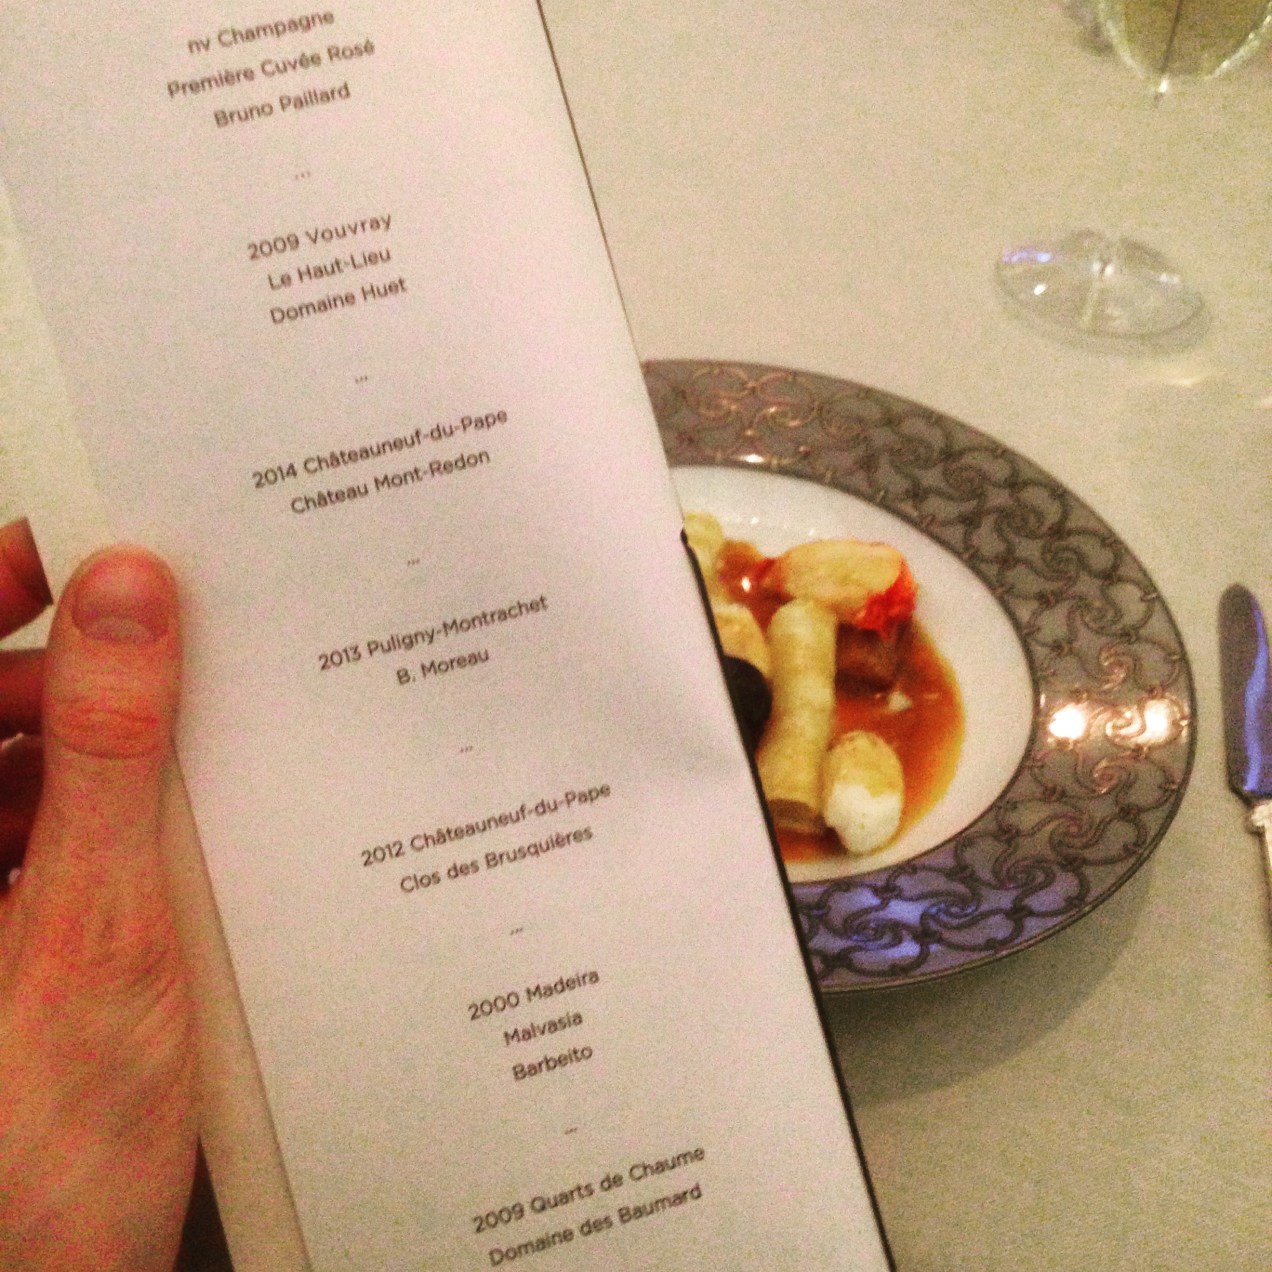 nv Champagne
Première Cuvée Rosé
Bruno Paillard
...
2009 Vouvray
Le Haut-Lieu
Domaine Huet
...
2014 Châteauneuf-du-Pape
Château Mont-Redon
...
2013 Puligny-Montrachet
B. Moreau
...
2012 Châteauneuf-du-Pape
Clos des Brusquières
...
2000 Madeira
Malvasia
Barbeito
...
2009 Quarts de Chaume
Domaine des Baumard